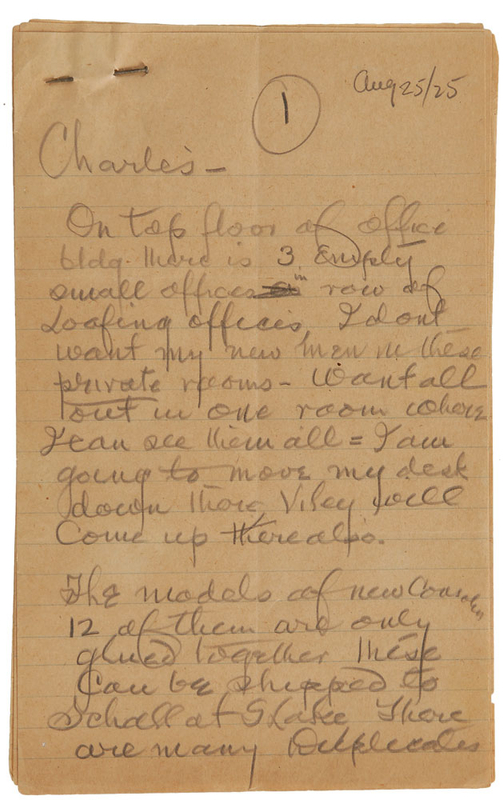 Aug 25/25
1
Charles-
On top floor of office
bldg. there is 3 empty
small offices in row of
Loafing offices, I dont
want my new men in these
private rooms - Want all
out in one room where
I can see them all = I am
going to move my desk
down there, will
Come up there also.
The models of new
12 of them are only
glued together these
Can be shipped to
Schall at S Lake There
are many Duplicates